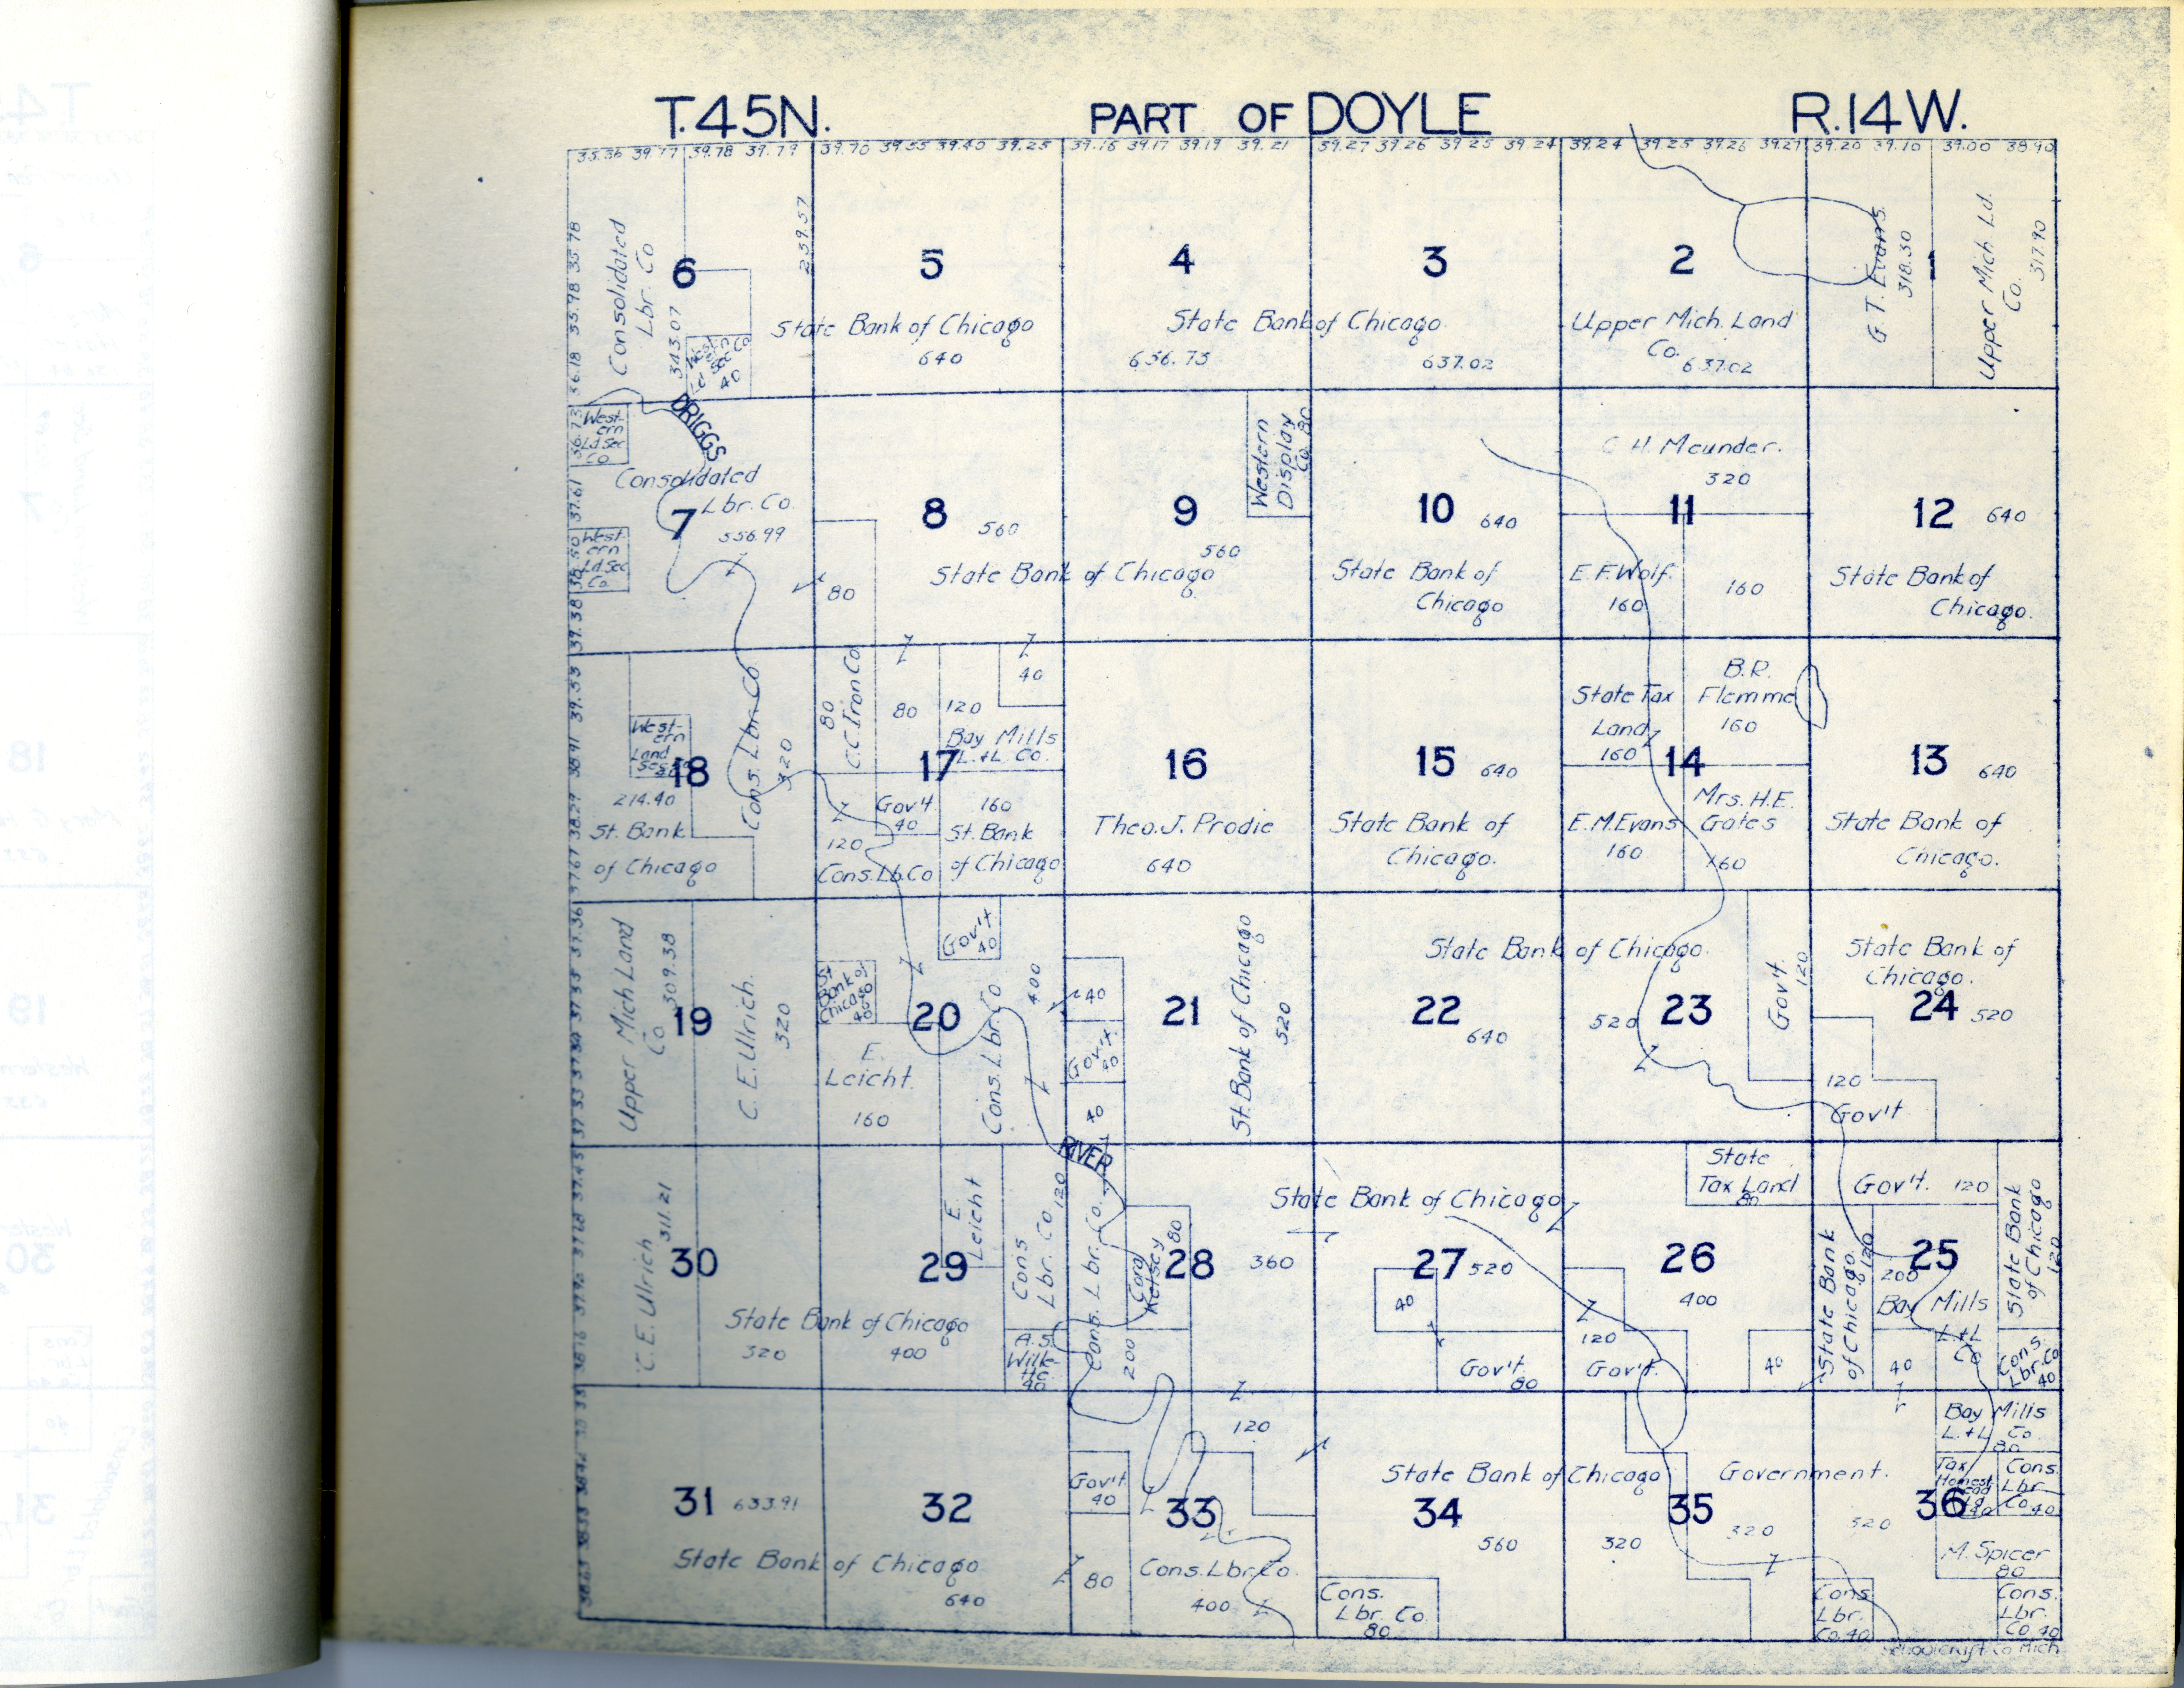 T.45N. PART OF DOYLE R.14W.
39.77 39.78 39.79 39.70 39.55 39.40 39.25 39.16 39.17 39.19 39.21 39.27 39.26 39.25 39.24 39.24 39.25 39.26 39.27 39.20 39.10 39.00 38.90
6
Consolidated
Lbr. Co
343.07
239.57
40
5
State Bank of Chicago
640
4
State Bank of Chicago
636.73
3
637.02
2
Upper Mich. Land
Co. 637.02
1
G T. Evans.
318.30
Upper Mich. Ld.
Co.
317.90
DRIGGS
West-
ern
Ld Sec
Co.
Consolidated
Lbr. Co.
7
556.99
West-
ern
Ld. Sec
Co.
8
560
80
9
560
State Bank of Chicago
Western
Display
Co. 80
10
640
State Bank of
Chicago
C H. Meunder.
320
11
E. F. Wolf.
160
160
12
640
State Bank of
Chicago.
West-
ern
Land
18
214.40
St. Bank
of Chicago
Cons. Lbr. Co
320
80
C.C. Iron Co.
80
120
40
Bay Mills
L. + L. Co.
17
Gov't
40
160
St. Bank
of Chicago
120
Cons. Lb. Co
16
Theo. J. Prodie
640
15
640
State Bank of
Chicago.
State Tax
Land
160
B.R.
Flemme
160
14
E.M. Evans
160
Mrs. H.E.
Gates
160
13
640
State Bank of
Chicago.
Upper Mich Land
Co
309.38
19
C. E. Ulrich.
320
St
Bank of
Chicago
40
20
Gov't
40
E.
Leicht.
160
Cons. Lbr. Co
400
40
Gov't
40
40
21
St. Bank of Chicago
520
22
640
State Bank of Chicago.
520
23
Gov't.
120
State Bank of
Chicago.
24
520
120
Gov't
RIVER
C. E. Ulrich
311.21
30
State Bank of Chicago
320
29
400
E.
Leicht
Cons
Lbr. Co.
120
A.S.
40
Cons. Lbr. Co.
200
Cora
Kelsey
80
28
360
State Bank of Chicago
27
520
40
Gov't.
80
State
Tax Land
80
26
400
120
Gov't.
40
Gov't. 120
State Bank
of Chicago.
120
25
200
Bay Mills
L+L
Co
40
State Bank
of Chicago
120
Cons.
Lbr. Co
40
31
633.91
State Bank of Chicago
32
640
Gov't.
40
80
120
33
Cons. Lbr. Co.
400
State Bank of Chicago
34
560
Cons.
Lbr. Co.
80
35
320
Government.
320
320
36
Bay Mills
L. + L. Co
80
Tax
Homest
ead
Cons.
Lbr
Co. 40
M. Spicer
80
Cons
Lbr.
Co. 40
Cons.
Lbr.
Co. 40
Schoolcraft Co Mich